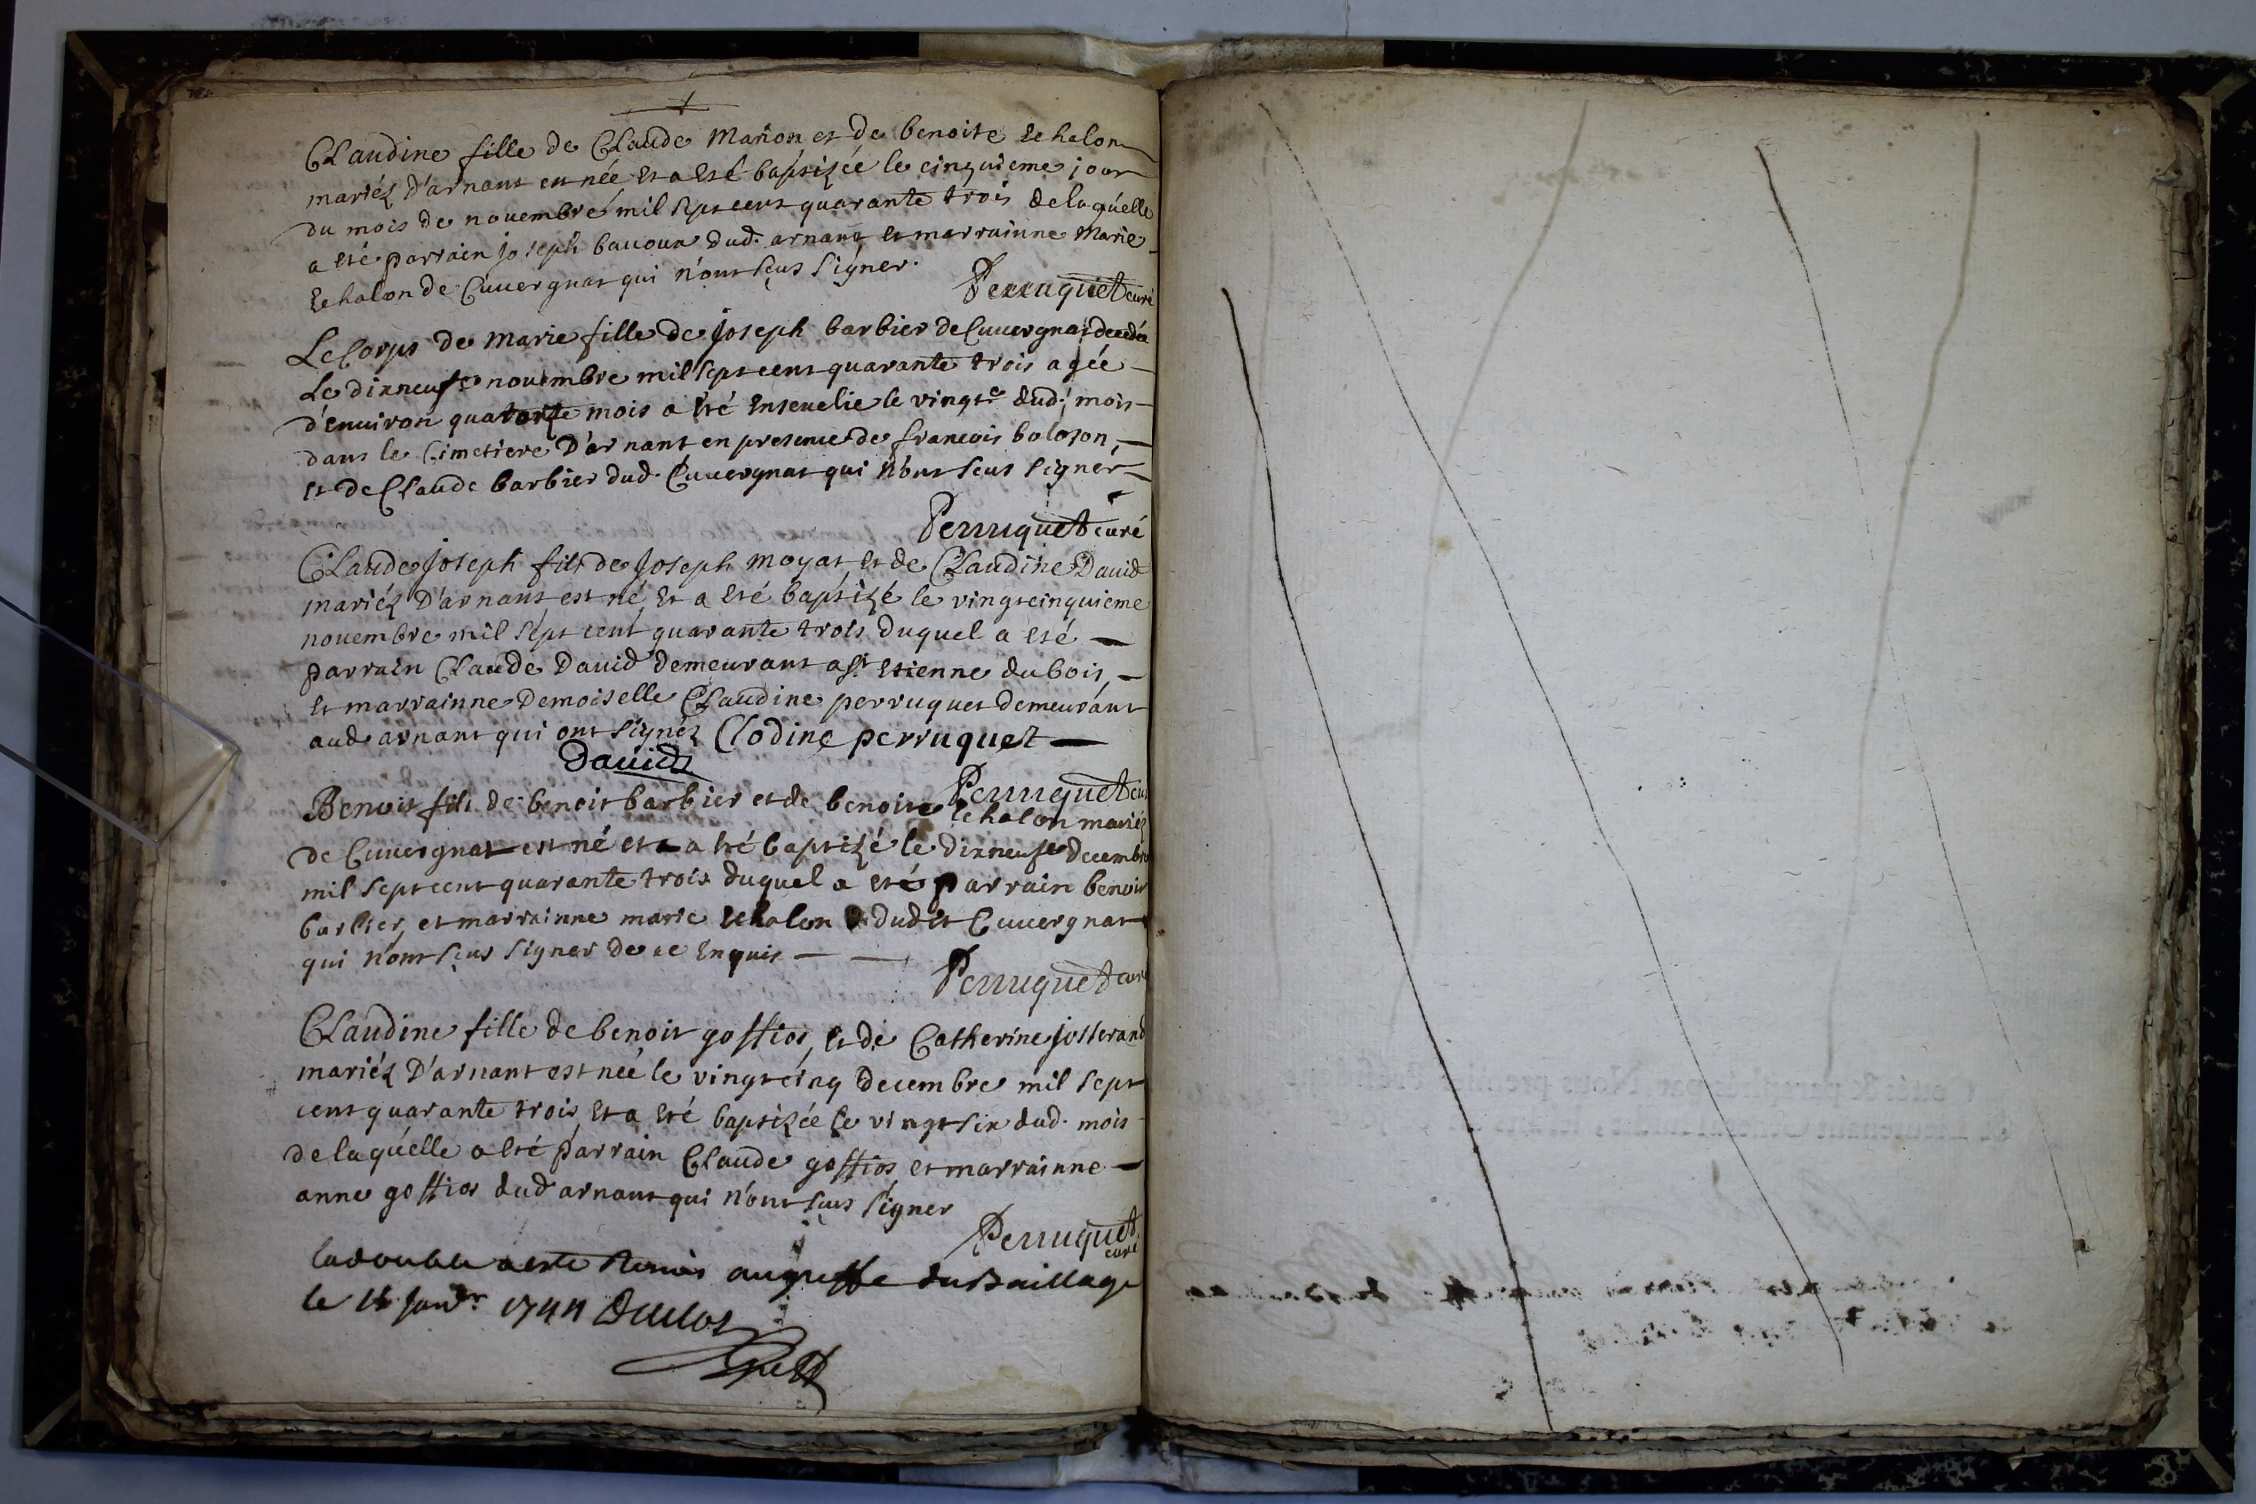 Claudine fille de Claude Marion et de benoite Echalon
mariéz D'arnant est née et a eté baptizée le cinquieme jour
du mois de novembre mil sept cent quarante trois de laquelle
a eté parrain joseph bavoux dud. arnant et marrainne Marie
Echalon de Cuvergnat qui n'ont sçus signer.
Perruquet curé
Le Corps de Marie fille de joseph barbier de Cuvergnat decedée
Le dixneufe novembre mil sept cent quarante trois agée
d'environ quatorze mois a été Ensevelie le vingte dud. mois
dans le Cimetiere D'arnant en presence de francois bolozon,
et de Claude barbier dud. Cuvergnat qui n'ont sçus signer
Perruquet curé
Claude joseph fils de joseph moyat et de Claudine David
mariéz D'arnant est né Et a Eté baptizé le vingtcinquieme
novembre mil sept cent quarante trois duquel a eté
parrain Claude David demeurant a St Etienne du bois,
Et marrainne Demoiselle Claudine perruquet demeurant
aud. arnant qui ont signéz Clodine perruquet
David
Perruquet curé
Benoit fils de benoit barbier et de benoite Echalon mariéz
de Cuvergnat est né et a été baptizé le dixneufe decembre
mil sept cent quarante trois duquel a eté parrain benoit
barbier, et marrainne marie Echalon dudit Cuvergnat
qui n'ont sçus signer de ce Enquis
Perruquet curé
Claudine fille de benoit goffios, et de Catherine josserand
mariéz D'arnant est née le vingt cinq decembre mil sept
cent quarante trois, et a Eté baptizée le vingt six dud. mois
de laquelle a eté parrain Claude goffios et marrainne
anne goffios dud. arnant qui n'ont sçus signer
Perruquet
curé
la double a esté Remis au greffe du Baillage
le janvr 1744